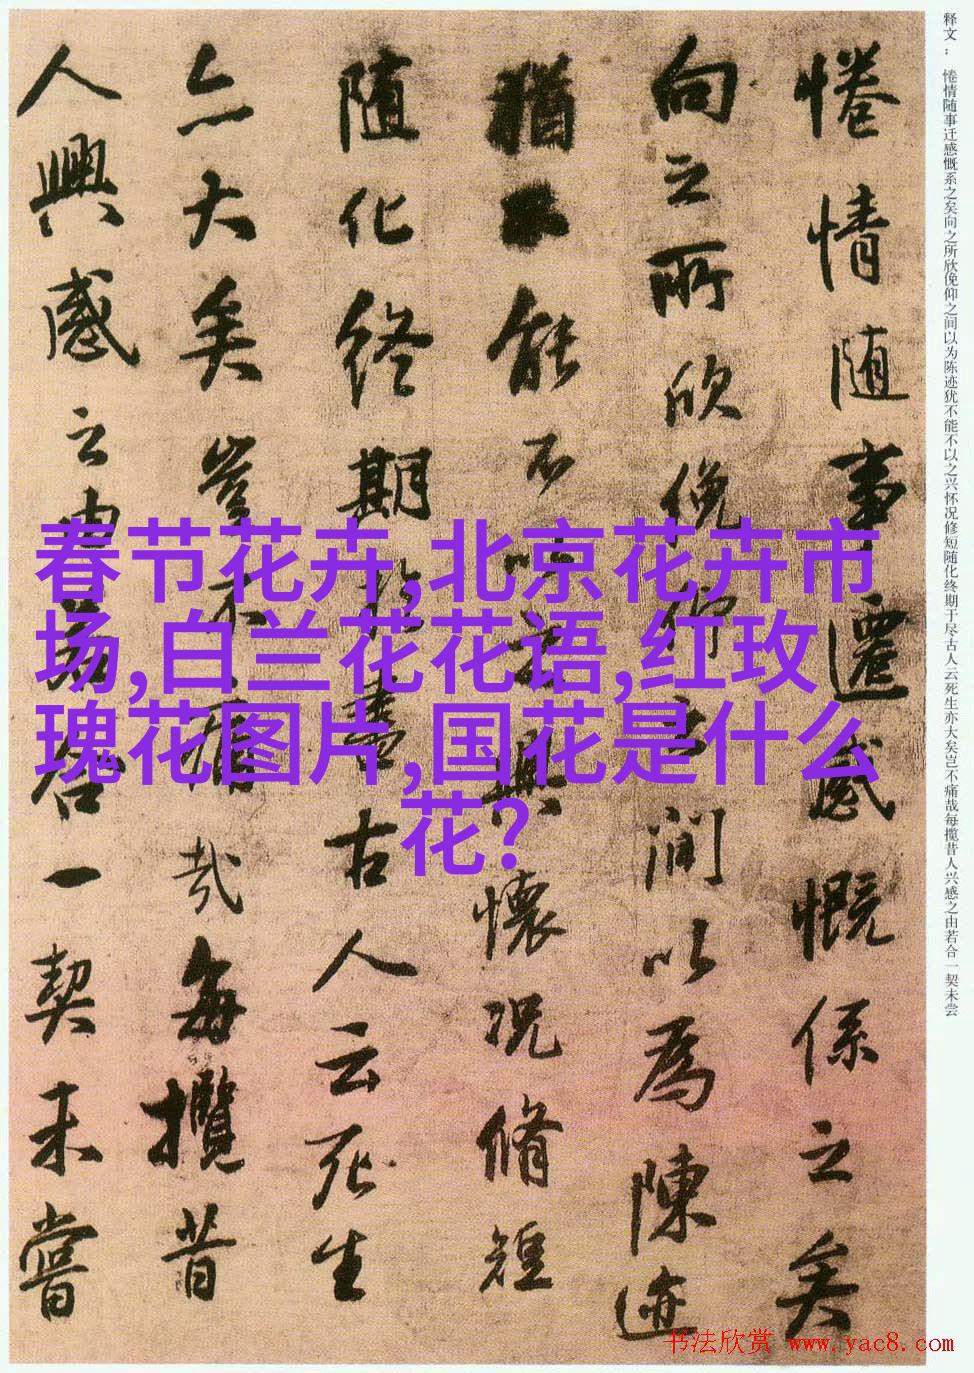 释文： 惓情随事迁感慨系之矣向之所欣俛仰之间以为陈迹犹不能不以之兴怀况修短随化终期于尽古人云死生亦大矣岂不痛哉每揽昔人兴感之由若合一契未尝
惓情随事遷感慨係之矣
向之所欣俛仰之間以為陳迹
猶不能不以之興懷況脩短
随化終期於盡古人云死生
亦大矣豈不痛哉每攬昔
人興感之由若合一契未嘗
春节花卉,北京花卉市
场,白兰花花语,红玫
瑰花图片,国花是什么
花?
书法欣赏 www.yac8.com